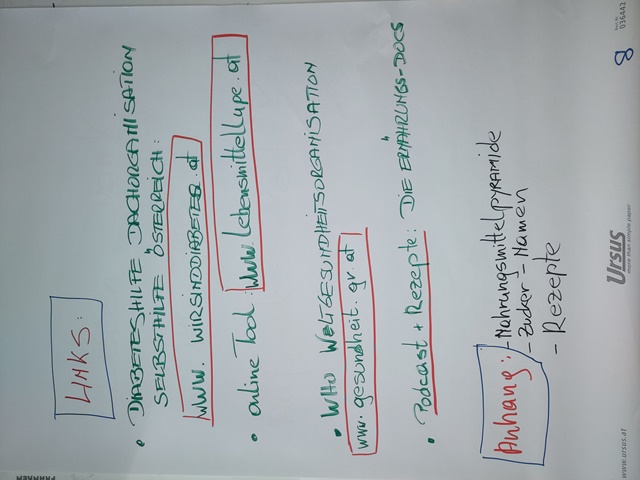 LINKS:
• DIABETESHILFE DACHORGANISATION
SELBSTHILFE ÖSTERREICH:
WWW. WIRSINDDIABETES.at
• online Tool: www.Lebensmittellupe.at
• WHO WELTGESUNDHEITSORGANISATION
www.gesundheit.gv.at
• Podcast + Rezepte: DIE ERNÄHRUNGS-DOCS
Anhang: - Nahrungsmittelpyramide
- Zucker - Namen
- Rezepte
www.ursus.at
Ursus
036442
8